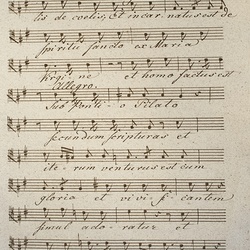 lis de coelis, et incarnatus est de
spiritu sancto ex Maria
Virgine et homo factus est
Allegro.
Sub Ponti-o Pilato
secundum scripturas et
iterum venturus est cum
gloria et vivificantem
simul adoratur et